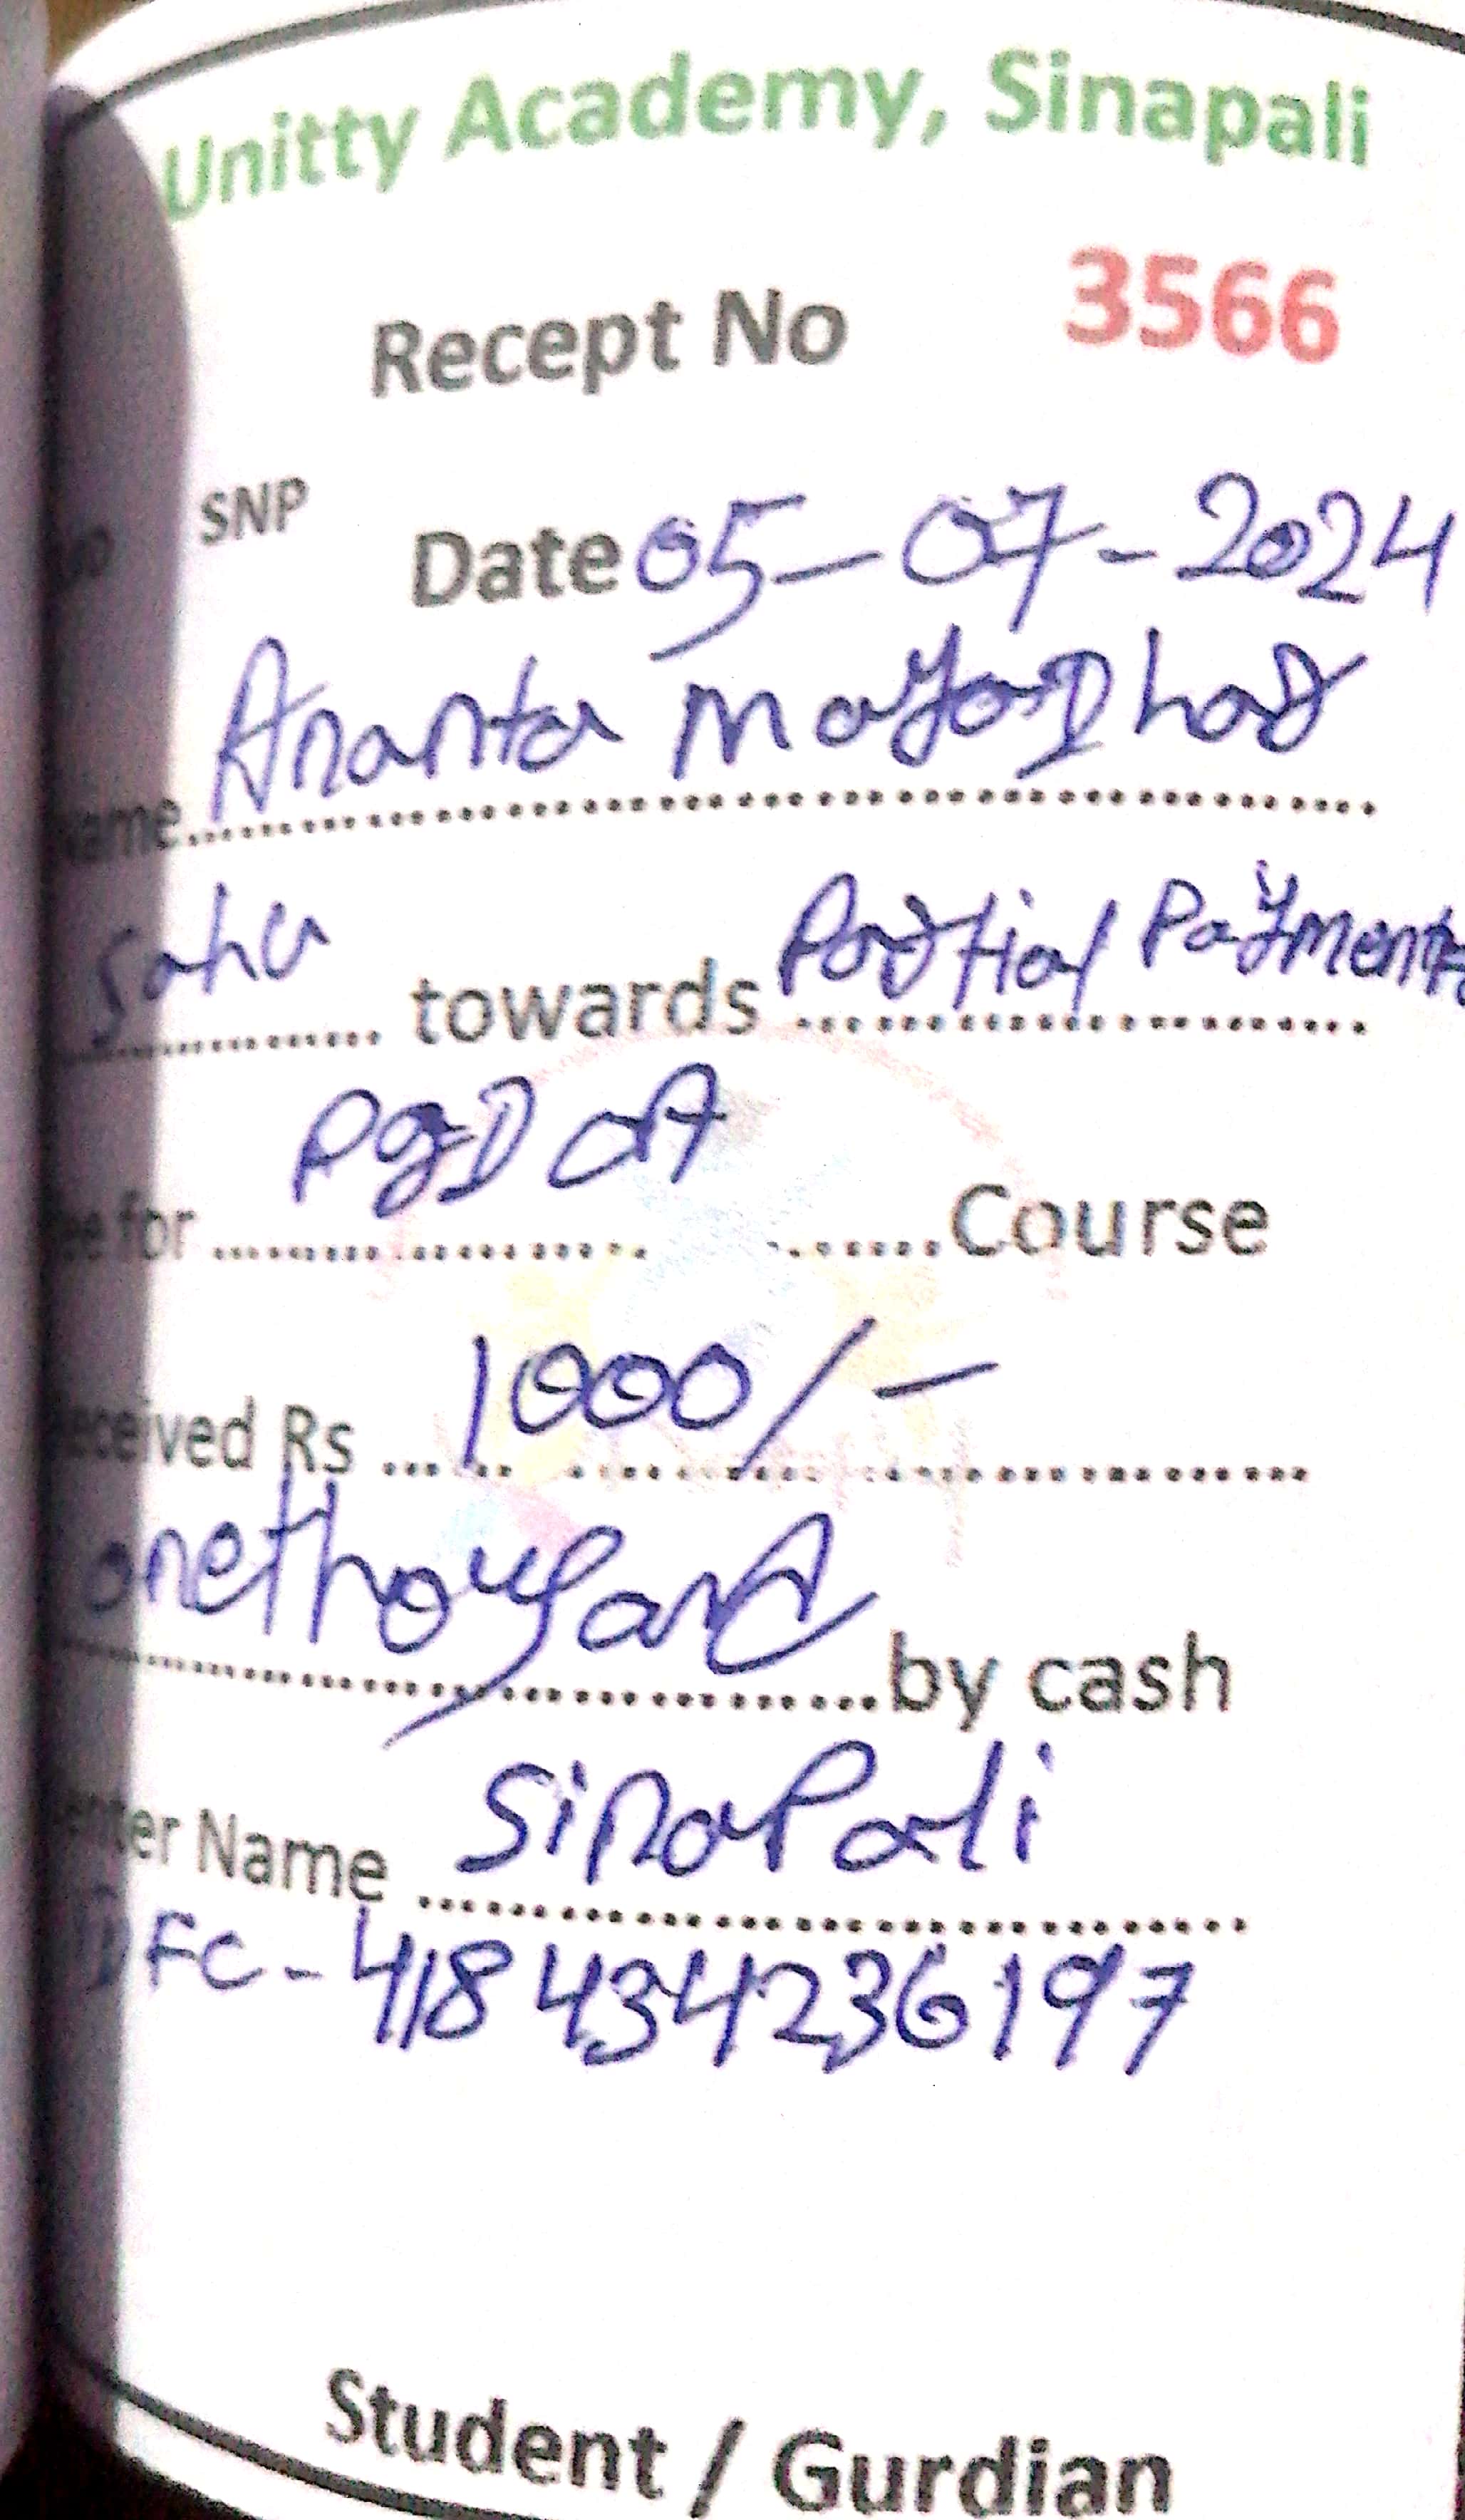 Unitty Academy, Sinapali
Recept No 3566
SNP
Date 05-07-2024
Ananta MayaDhar
name
Sahu towards Partial Payment
for PgDCA Course
Received Rs 1000/-
onethousand by cash
Center Name SinaPali
IDFC-418434236197
Student / Gurdian